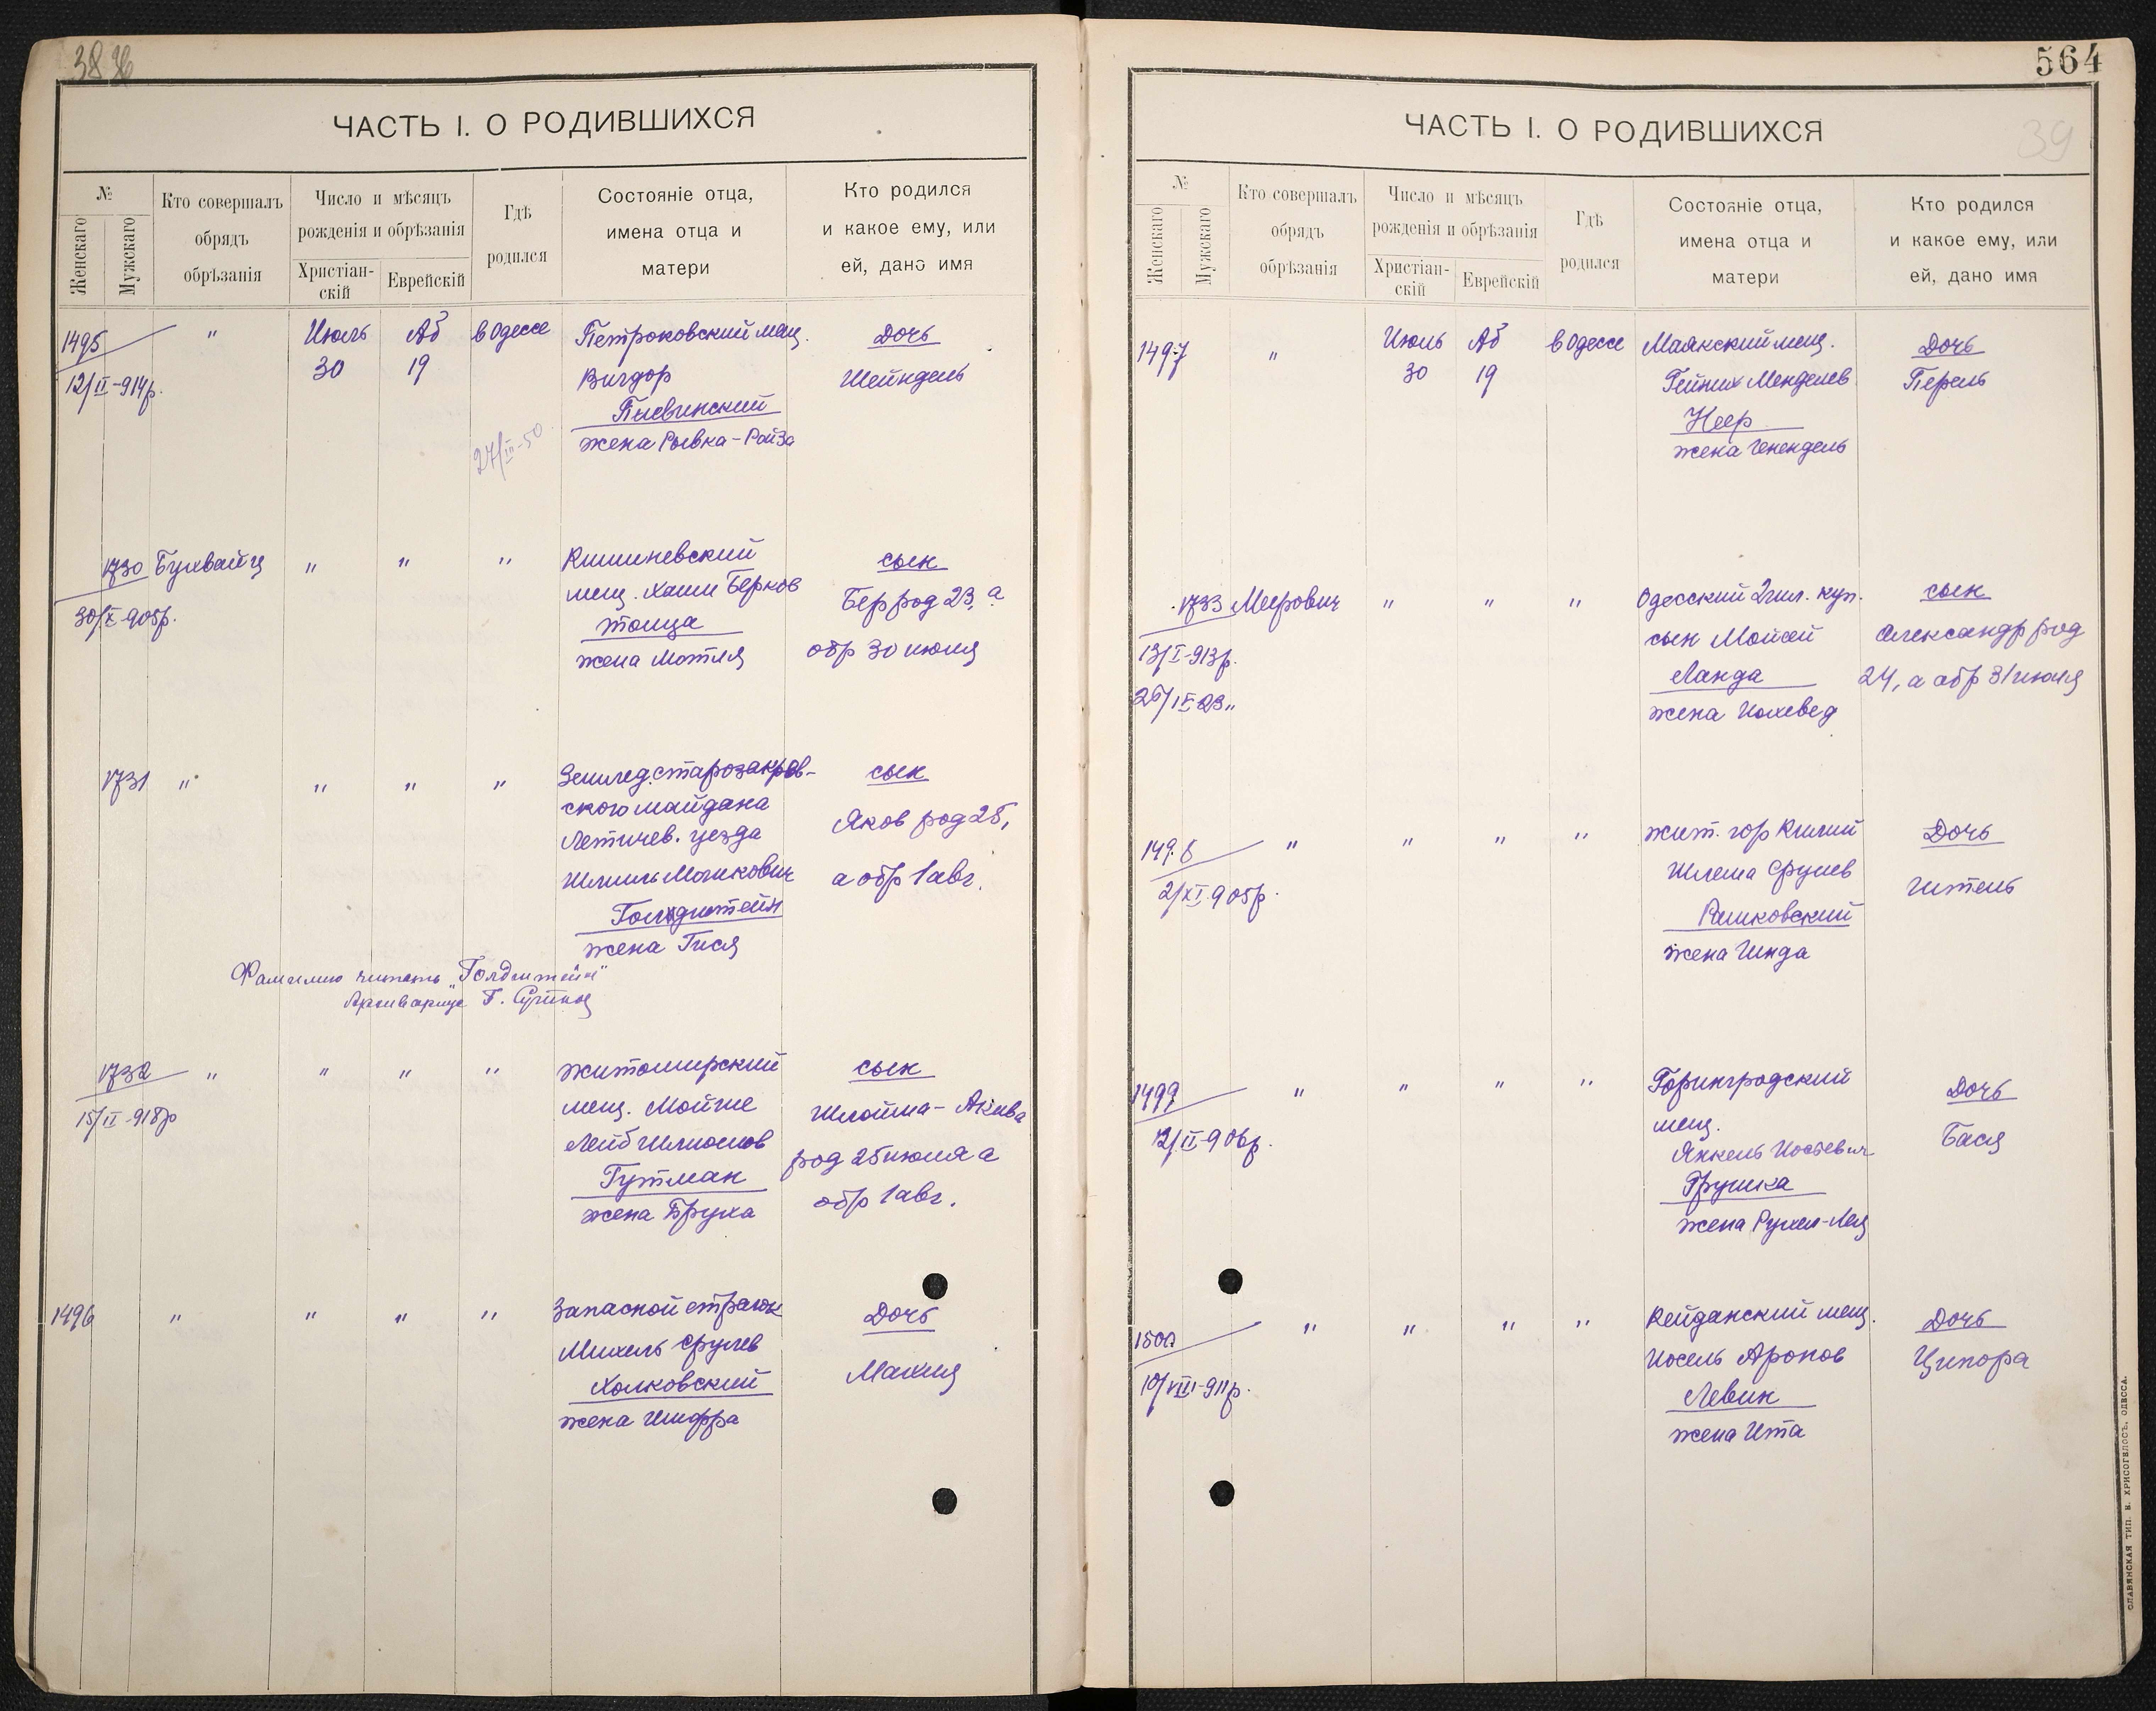 38
ЧАСТЬ I. О РОДИВШИХСЯ
№
Женскаго
Мужскаго
Кто совершалъ
обрядъ
обрѣзанія
Число и мѣсяцъ
рожденія и обрѣзанія
Христіан-
скій
Еврейскій
Гдѣ
родился
Состояніе отца,
имена отца и
матери
Кто родился
и какое ему, или
ей, дано имя
1495
12/II-914р.
"
Июль
30
Аб
19
в Одессе
27/III-50
Петроковский мещ.
Вигдор
жена Рывка-Ройза
Дочь
Шейндель
1730
30/X-905р.
Бухвайц
"
"
"
Кишиневский
мещ. Хаим Берков
жена Мотля
сын
Бер род 23, а
обр 30 июля
1731
"
"
"
"
Землед. старозакрев-
ского майдана
Летичев. уезда
Шмиль Мошкович
Гольдштейн
жена Гися
сын
Яков род 25,
а обр 1 авг.
Фамилию читать „Голдштейн"
Архивариус Г.
1732
15/II-918р
"
"
"
"
Житомирский
мещ. Мойше
Лейб Шлиомов
Гутман
жена Бруха
сын
Шлойма-Акива
род 25 июля а
обр 1 авг.
1496
"
"
"
"
Запасной
Михель Срулев
Холковский
жена Шифра
Дочь
Махля
564
39
ЧАСТЬ I. О РОДИВШИХСЯ
№
Женскаго
Мужскаго
Кто совершалъ
обрядъ
обрѣзанія
Число и мѣсяцъ
рожденія и обрѣзанія
Христіан-
скій
Еврейскій
Гдѣ
родился
Состояніе отца,
имена отца и
матери
Кто родился
и какое ему, или
ей, дано имя
1497
"
Июль
30
Аб
19
в Одессе
Маякский мещ.
Гейних Менделев
Неер
жена Генендель
Дочь
Перель
1733
13/I-913р.
Меерович
"
"
"
Одесский 2 гил. куп.
сын Мойсей
Ланда
жена Иохевед
сын
Александр род
24, а обр 31 июля
1498
2/XI 905р.
"
"
"
"
жит. гор Килии
Шлема Срулев
Рашковский
жена Гинда
Дочь
Гитель
1499
12/II-906р.
"
"
"
"
Горинградский
мещ.
Янкель Иосевич
Грушка
жена Рухел-Лея
Дочь
Бася
1500
10/VIII-911р.
"
"
"
"
Кейданский мещ.
Иосель Аронов
Левин
жена Ита
Дочь
Ципора
СЛАВЯНСКАЯ ТИП. Н. ХРИСОГЕЛОСЪ, ОДЕССА.